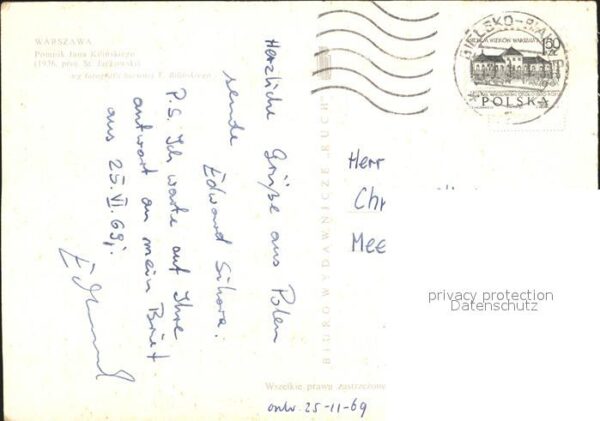 WARSZAWA
Pomnik Jana Kilińskiego
(1936, proj. St. Jackowski)
wg fotografii barwnej T. Bilińskiego
Herzliche Grüße aus Polen
sende
Edward Sikora.
P.S. Ich warte auf Ihre
antwort an mein Brief
aus 25.VI.69j.
Edward
BIURO WYDAWNICZE „RUCH"
BIELSKO-BIAŁA
1,50
ZŁ
POLSKA
Herr
Chr
Mee
privacy protection
Datenschutz
Wszelkie prawa zastrzeżone
ontv. 25-11-69